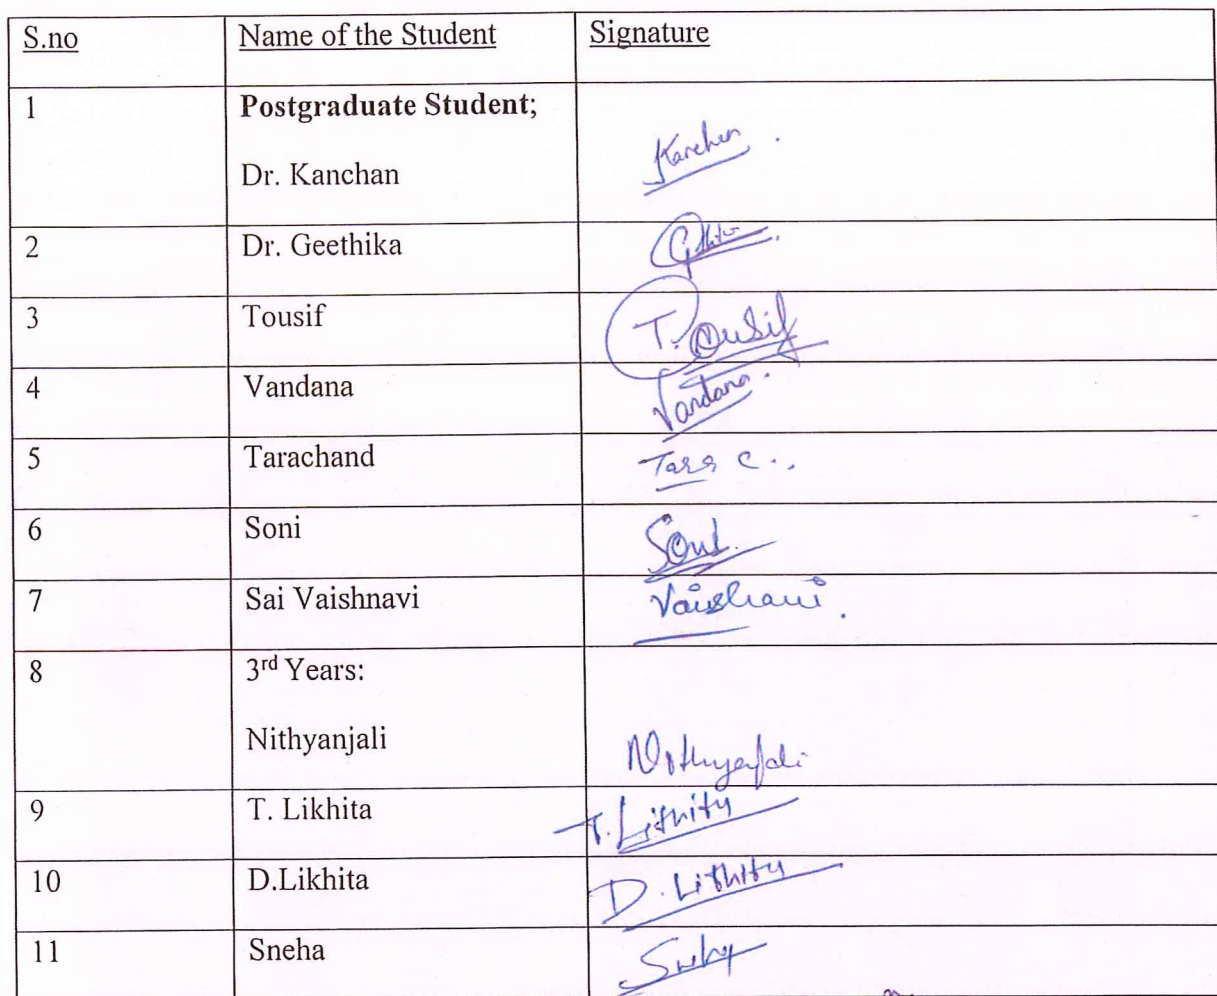 S.no Name of the Student Signature
1 Postgraduate Student;
Dr. Kanchan Kanchan.
2 Dr. Geethika
3 Tousif T. Ousif
4 Vandana Vandana.
5 Tarachand Tara C..
6 Soni Soni.
7 Sai Vaishnavi Vaishanvi.
8 3rd Years:
Nithyanjali Nithyanjali
9 T. Likhita T. Likhita
10 D.Likhita D. Likhita
11 Sneha Sneha